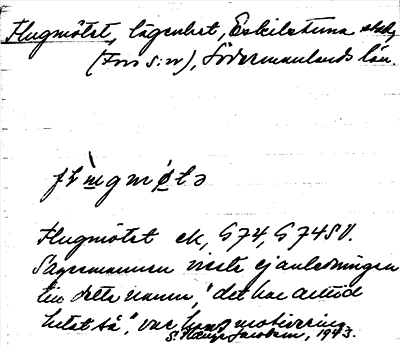 Flugmötet, lägenhet, Eskilstuna stad,
(Fors s:n), Södermanlands län.
flɯgmø̀tə
Flugmötet ek, G74, G74SV.
Sagesmannen visste ej anledningen
till detta namn, "det har alltid
hetat så", var hans motivering.
S. Hænge Jacobsen, 1943.